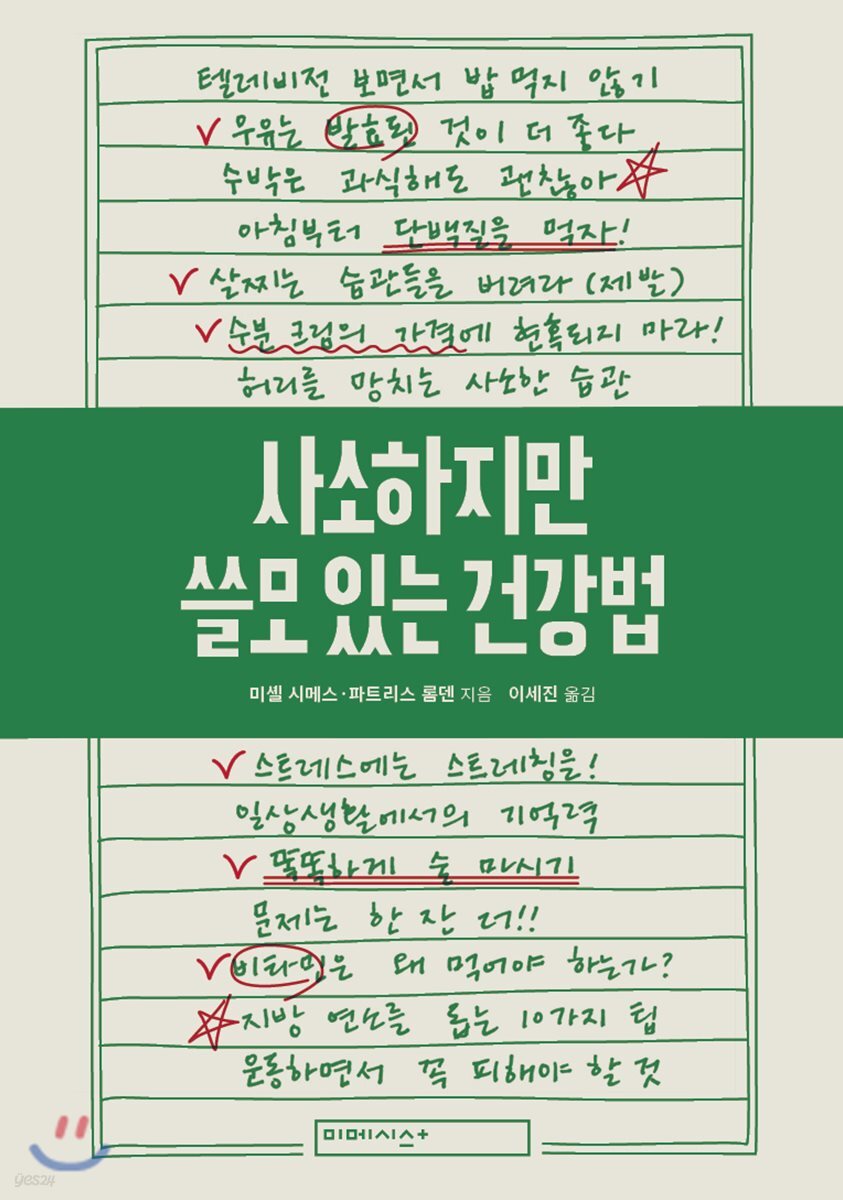 텔레비전 보면서 밥 먹지 않기
우유는 발효된 것이 더 좋다
수박은 과식해도 괜찮아
아침부터 단백질을 먹자!
살찌는 습관들을 버려라 (제발)
수분 크림의 가격에 현혹되지 마라!
허리를 망치는 사소한 습관
사소하지만
쓸모 있는 건강법
미셸 시메스·파트리스 롬덴 지음 이세진 옮김
스트레스에는 스트레칭을!
일상생활에서의 기억력
똑똑하게 술 마시기
문제는 한 잔 더!!
비타민은 왜 먹어야 하는가?
지방 연소를 돕는 10가지 팁
운동하면서 꼭 피해야 할 것
미메시스+
yes24